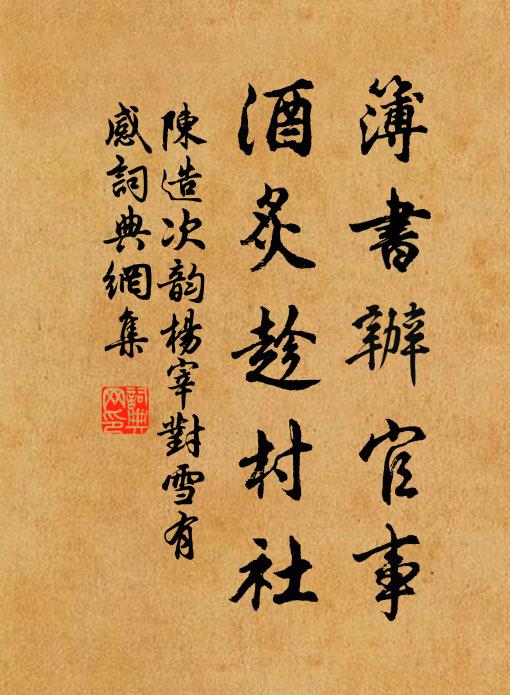 簿書辦官事
酒炙趁村社
陳造次韵楊宰對雪有
感詞典網集
詞典
网印